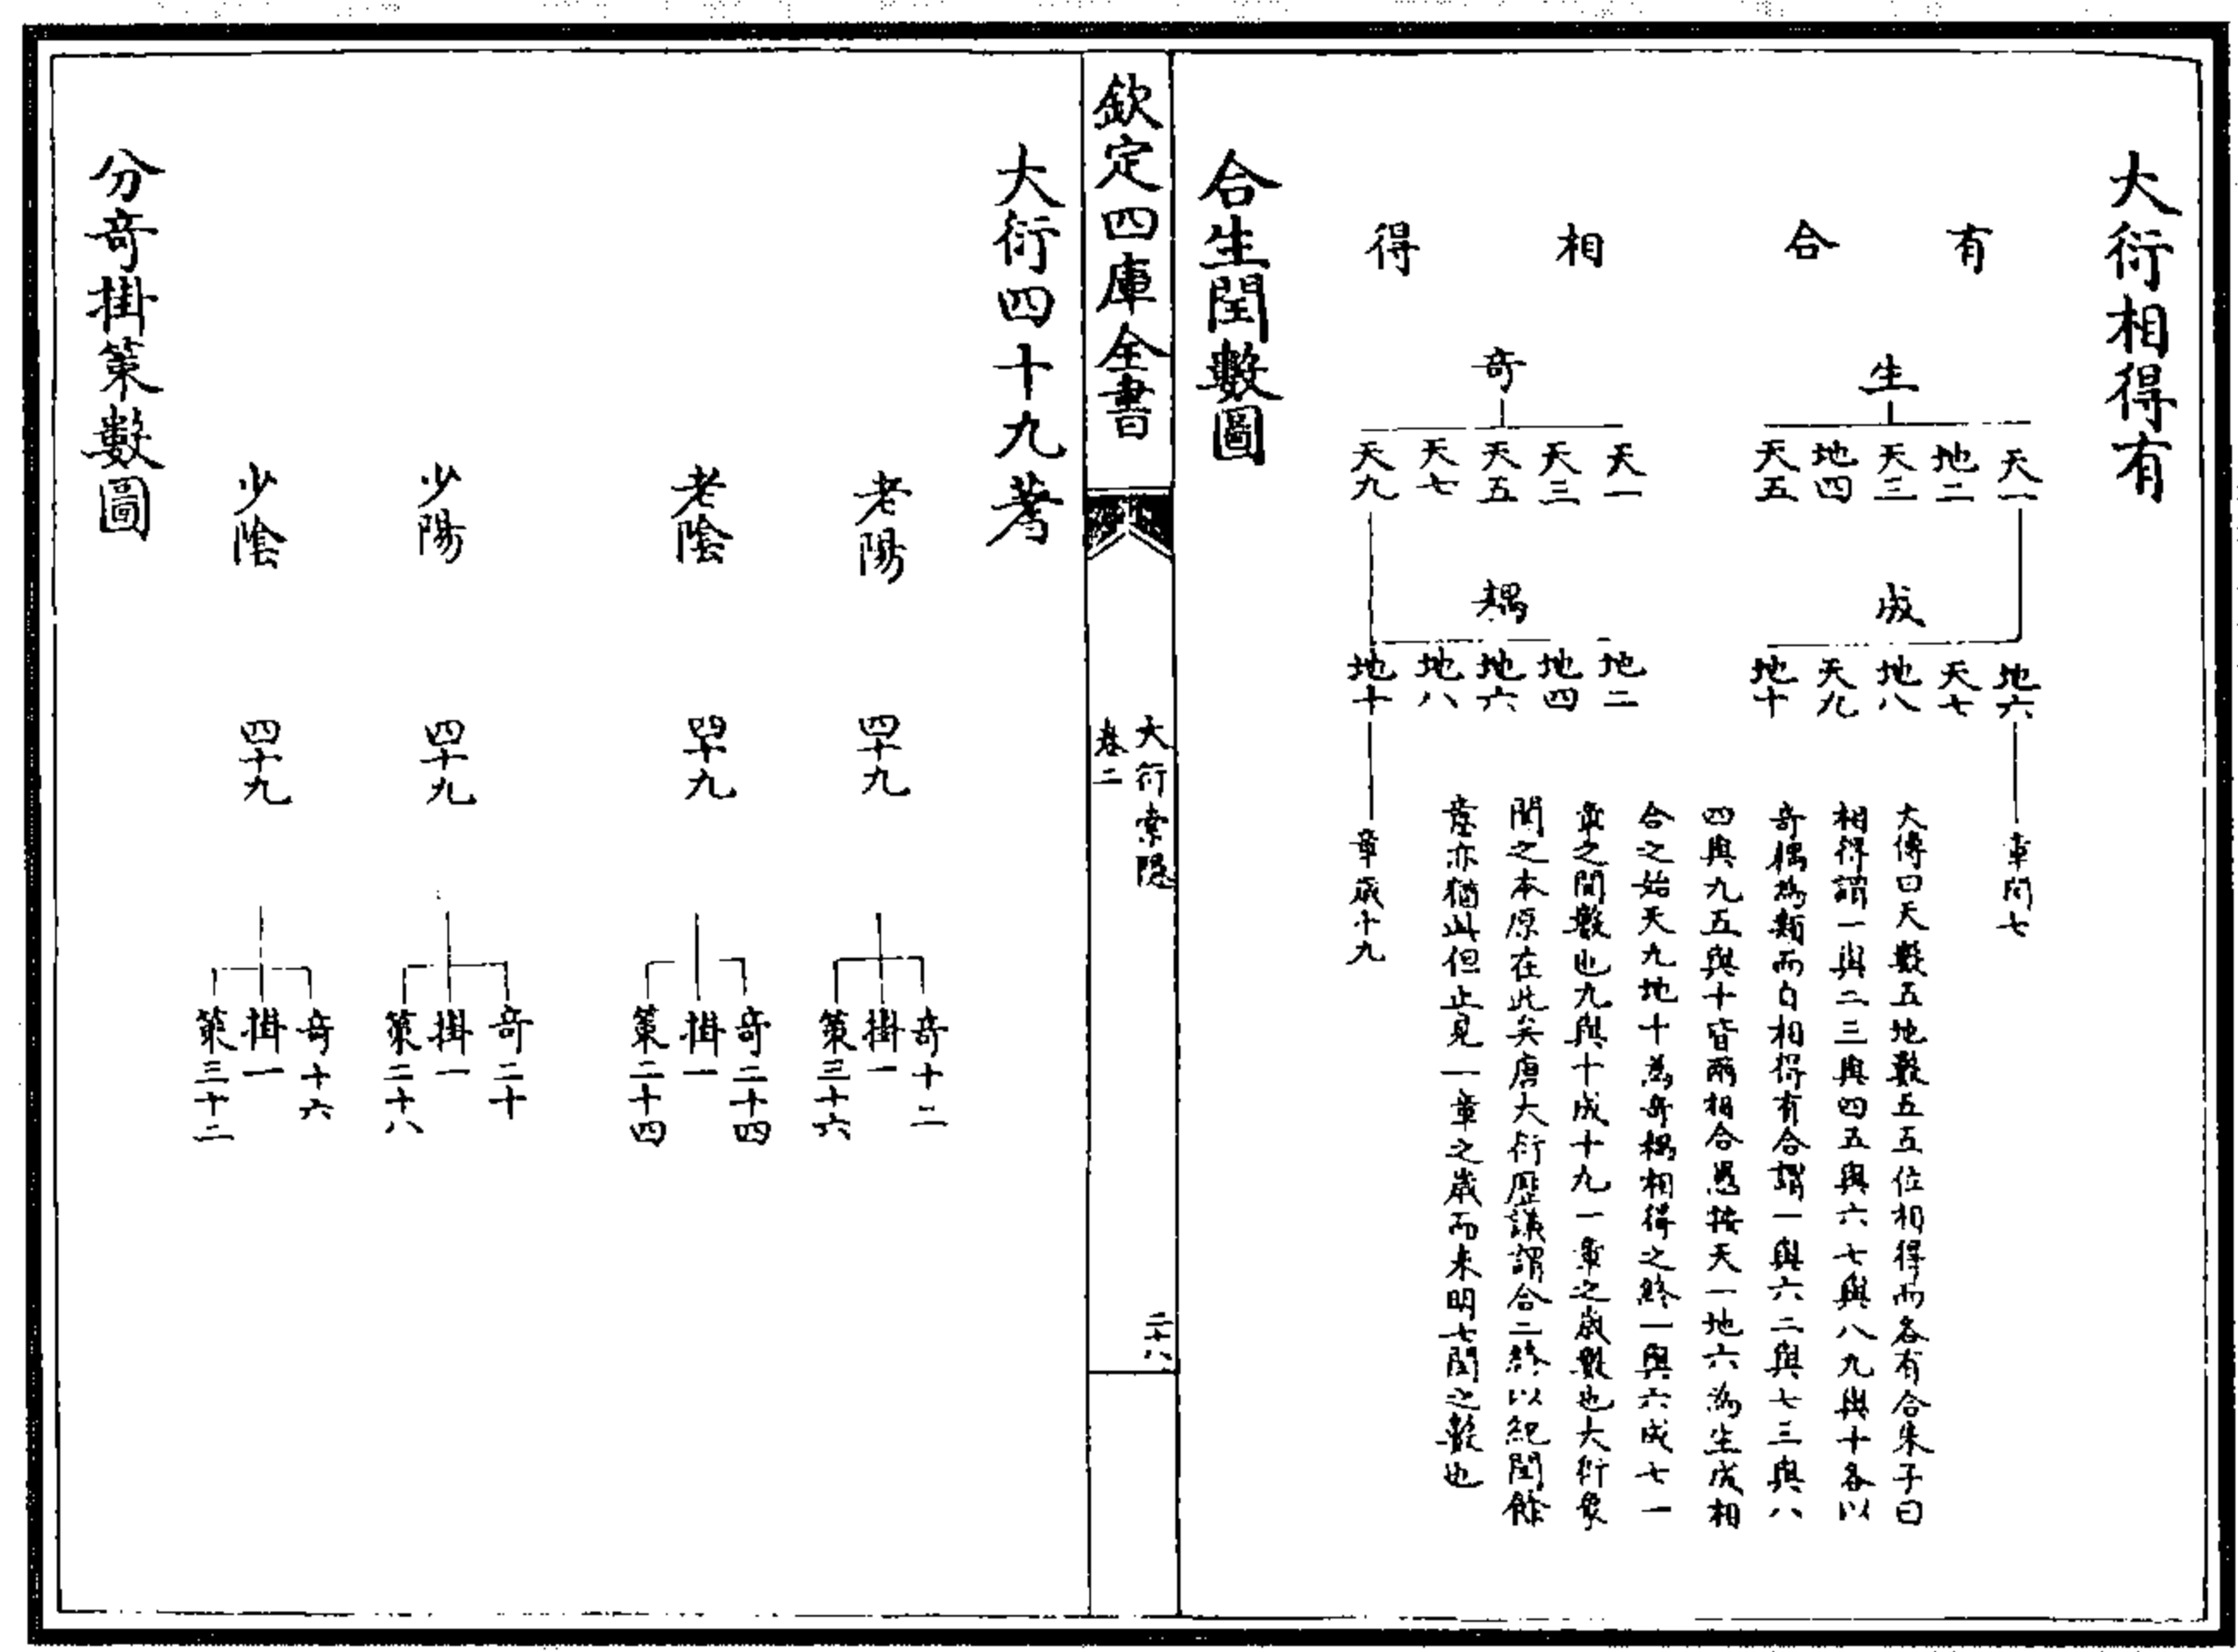 大衍相得有
有合
生
天一
地二
天三
地四
天五
成
地六
天七
地八
天九
地十
章閏七
相得
奇
天一
天三
天五
天七
天九
耦
地二
地四
地六
地八
地十
章歲十九
大傳曰天數五地數五五位相得而各有合朱子曰
相得謂一與二三與四五與六七與八九與十各以
奇耦為類而自相得有合謂一與六二與七三與八
四與九五與十皆兩相合愚按天一地六為生成相
合之始天九地十為奇耦相得之終一與六成七一
章之閏數也九與十成十九一章之歲數也大衍象
閏之本原在此矣唐大衍歷議謂合二終以紀閏餘
意亦猶此但止見一章之歲而未明七閏之數也
合生閏數圖
欽定四庫全書
大衍索隱
卷二
二十八
大衍四十九蓍
老陽
四十九
奇十二
掛一
策三十六
老陰
四十九
奇二十四
掛一
策二十四
少陽
四十九
奇二十
掛一
策二十八
少陰
四十九
奇十六
掛一
策三十二
分奇掛策數圖